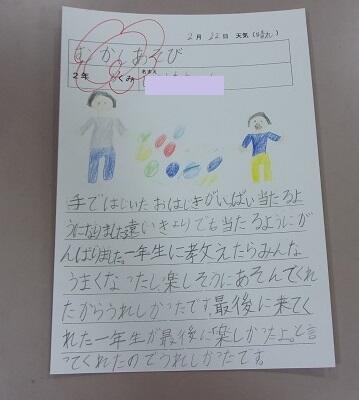 2月22日 天気(晴れ)
むかしあそび
2年 くみ 名まえ
手ではじいたおはじきがいっぱい当たるよ
うになりました。遠いきょりでも当たるようにが
んばりました。一年生に教えたらみんな
うまくなったし、楽しそうにあそんでくれ
たからうれしかったです。最後に来てく
れた一年生が最後に「楽しかったよ。」と言
ってくれたのでうれしかったです。